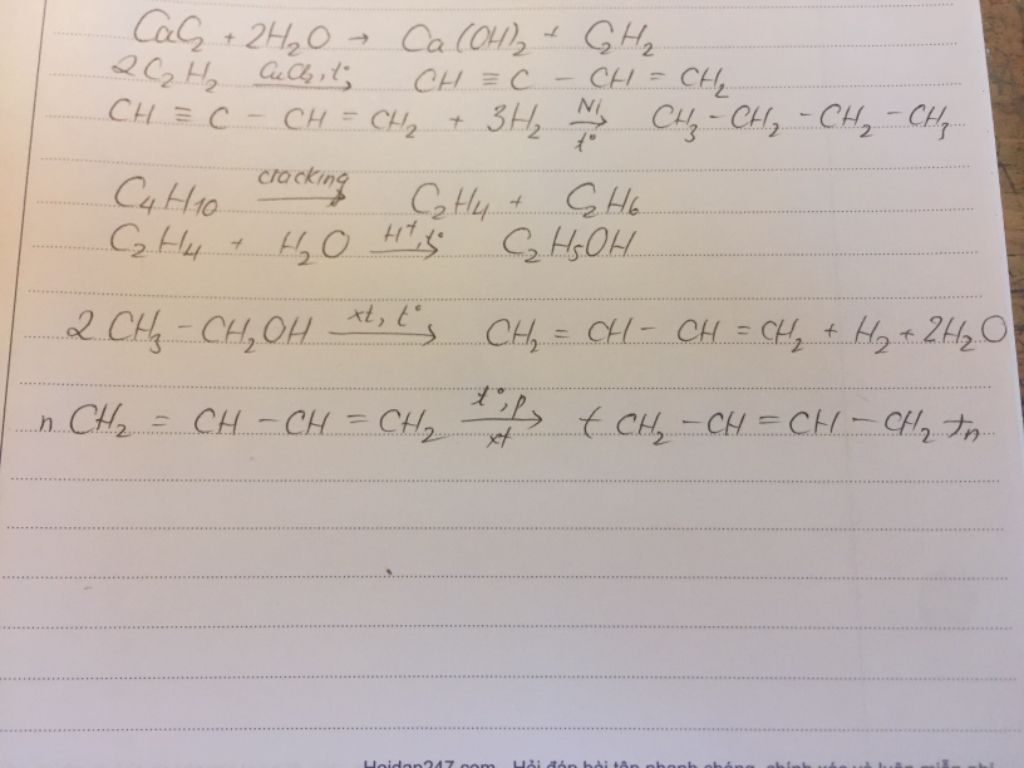 CaC2 + 2H2O → Ca(OH)2 + C2H2
2C2H2 CuCl2, t° → CH ≡ C - CH = CH2
CH ≡ C - CH = CH2 + 3H2 Ni t° → CH3 - CH2 - CH2 - CH3
C4H10 cracking → C2H4 + C2H6
C2H4 + H2O H+, t° → C2H5OH
2CH3 - CH2OH xt, t° → CH2 = CH - CH = CH2 + H2 + 2H2O
n CH2 = CH - CH = CH2 t°, p xt → (CH2 - CH = CH - CH2)n
Hoidap247.com - Hỏi đáp bài tập nhanh chóng, chính xác và luôn miễn phí